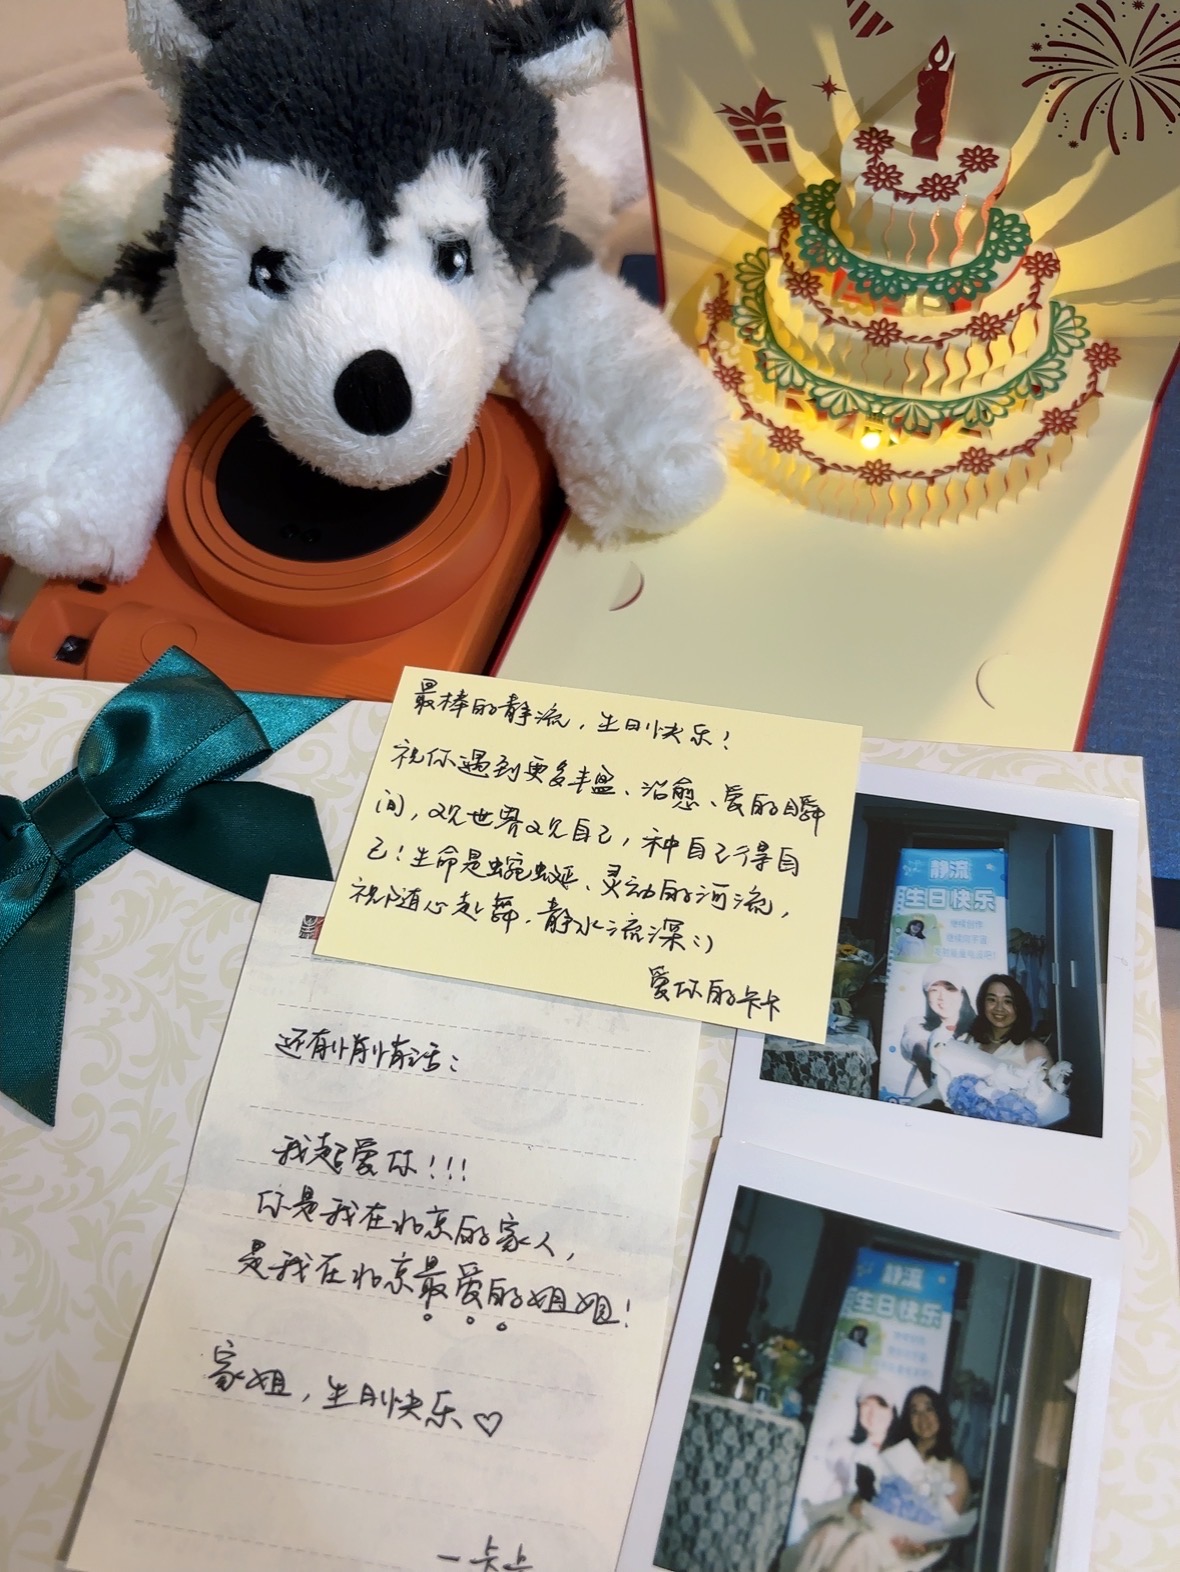 最棒的静流，生日快乐！
祝你遇到更多丰盈、治愈、爱的瞬
间，观世界观自己，种自己得自
己！生命是蜿蜒、灵动的河流，
祝随心起舞，静水流深:)
爱你的卡卡
还有悄悄话：
我超爱你！！！
你是我在北京的家人，
是我在北京最爱的姐姐！
家姐，生日快乐♡
一卡卡
静流
生日快乐
静流
生日快乐